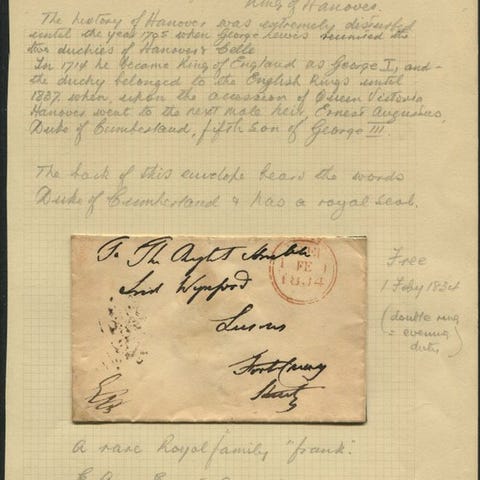 King of Hanover.
The history of Hanover was extremely disjointed
until the year 1705 when George Lewis reunited the
two duchies of Hanover & Celle
In 1714 he became King of England as George I, and
the duchy belonged to the English Kings until
1837 when, upon the accession of Queen Victoria
Hanover went to the next male heir Ernest Augustus,
Duke of Cumberland, fifth son of George III.
The back of this envelope bears the words
Duke of Cumberland & has a royal seal.
To The Right Honble
Lord Wynford
FREE
1 FE 1
1834
Free
1 Feby 1834
(double ring
= evening
duty)
A rare Royal family "frank".